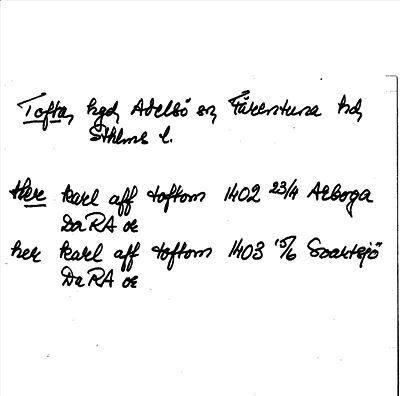 Tofta, hgd, Adelsö sn, Färentuna hd,
Sthlms l.
Her karl aff toftom 1402 23/4 Arboga
DaRA or
her karl aff toftom 1403 15/6 Svartsjö
DaRA or